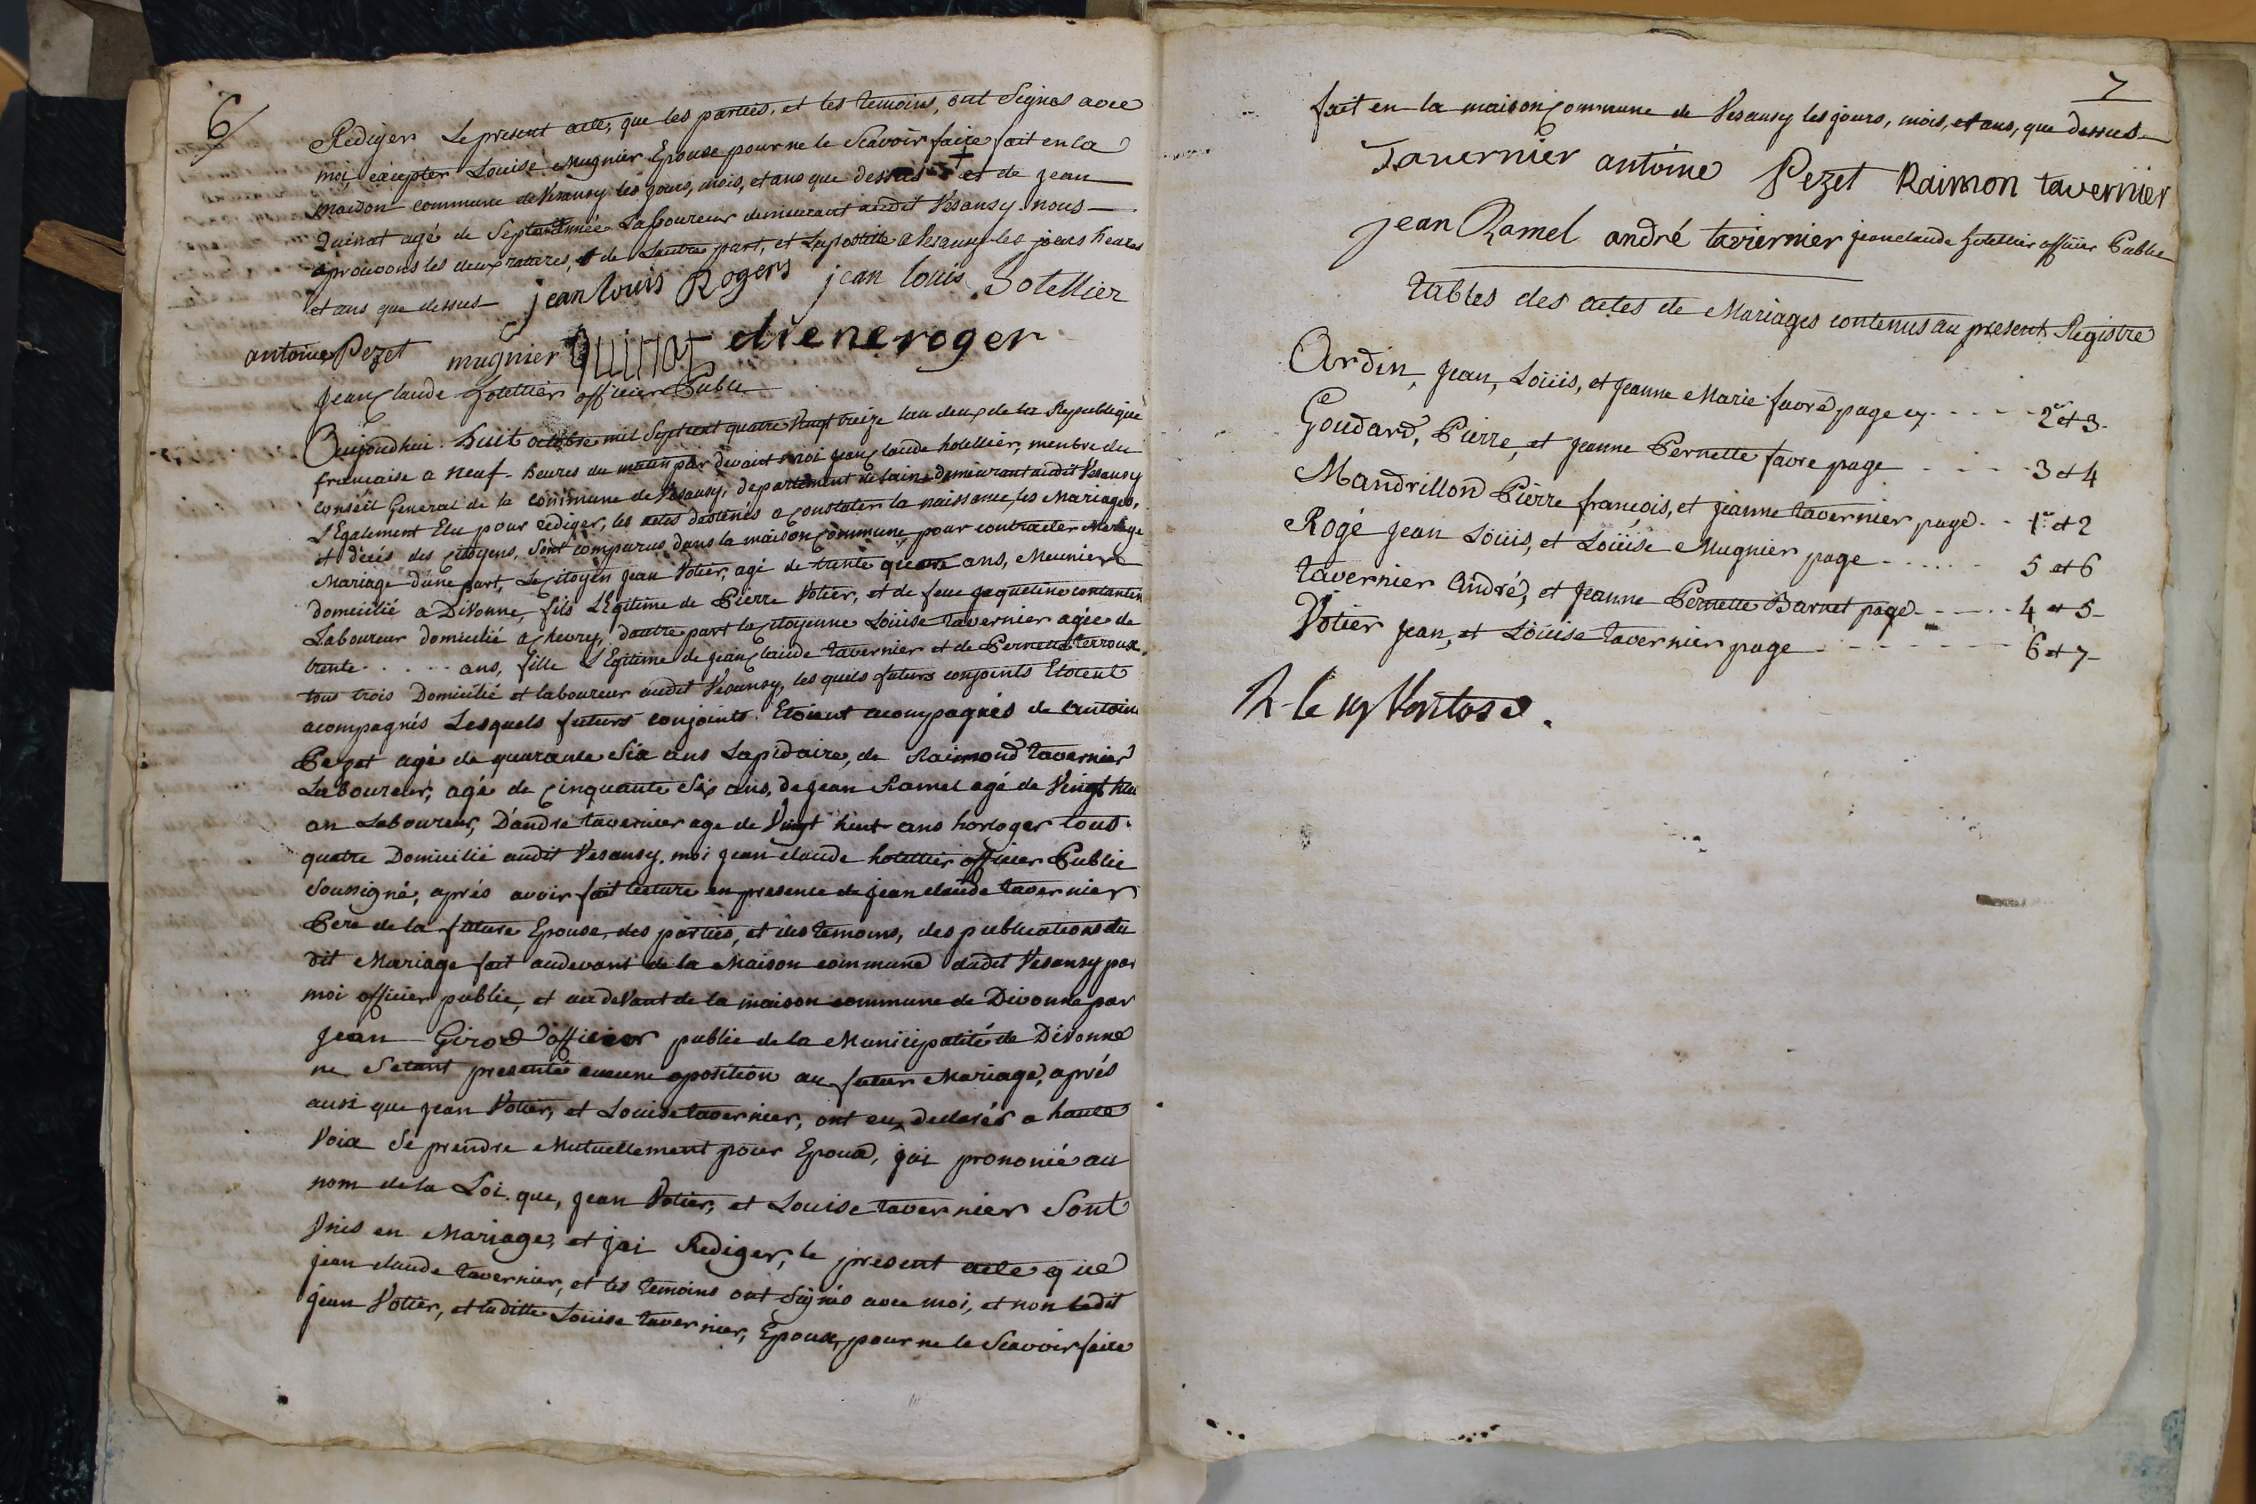 6
Rediger Le present acte, que les parties, et les temoins, ont Signes avec
moi, éxcepter Louise Mugnier Epouse pour ne le Scavoir faire fait en la
maison commune de Vesansy les jours, mois, et ans que dessus + et de jean
Quinat agé de Laboureur demeurant audit Vesansy nous
aprouvons les deux ratures, de Lautre part, et Lapostille a Vesansy les jours heures
et ans que dessus jean louis Rogers jean louis Hotellier
antoine Pezet mugnier Quinat etiene roger
Jean Claude hotellier officier Public
Aujourdhui huit octobre mil Septcent quatre Vingt treize lan deux de la Republique
francaise a neuf heures du matin par devant moi jean Claude hotellier, menbre du
conseil General de la commune de Vesansy, departement de lain, demeurant audit Vesansy
Légalement Elu pour rediger, les actes destinés a Constater la naissance, les Mariages,
et décés des Citoyens, Sont comparus dans la maison Commune, pour contracter Mariage
Mariage dune part, Le Citoyen jean Votier, agé de trente quatre ans, Meunier
domicilié a Divonne, fils Légitime de Pierre Votier, et de feue jaqueline contantin
Laboureur domicilié a Chevry, dautre part la Citoyenne Loüise tavernier agée de
trente ..... ans, fille Légitime de jean Claude tavernier et de Pernette Perroux,
tous trois Domicilié et laboureur audit Vesansy, les quels futurs conjoints Etoient
acompagnés Lesquels futurs conjoints Etoient acompagnés de antoine
Pezet agé de quarante Six ans Lapidaire, de Raimond tavernier
Laboureur, agé de Cinquante Six ans, de jean Ramel agé de Vingt
an Laboureur, Dandre tavernier age de Vingt huit ans horloger tous
quatre Domicilié audit Vesansy. moi jean claude hotellier officier Public
Soussigné, aprés avoir fait lecture en presence de jean claude tavernier
Pere de la future Epouse, des parties, et des temoins, des publications du
dit Mariage fait audevant de la Maison commune dudit Vesansy par
moi officier public, et au devant de la maison commune de Divonne par
Jean Girod officier public de la Municipalité de Divonne
ne Setant presenté aucune oposition au futur Mariage, aprés
ausi que jean Votier, et Louise tavernier, ont eu, declarés a haute
Voix Se prendre Mutuellement pour Epoux, jai prononcé au
nom de la Loi que, jean Votier, et Louise tavernier Sont
Unis en Mariage, et jai Rediger, le present acte que
jean claude tavernier, et les temoins ont Signés avec moi, et non ledit
jean Votier, et laditte Louise tavernier, Epoux, pour ne le Scavoir faire
7
fait en la maison Commune de Vesansy les jours, mois, et ans, que dessus
Tavernier antoine Pezet Raimon tavernier
jean Ramel andré taviernier jean claude hotellier officier Public
tables des actes de Mariages contenus au present Registre
Ardin, Jean, Loüis, et Jeanne Marie favre page 2 et 3
Goudard, Pierre, et Jeanne Pernette favre page 3 et 4
Mandrillon Pierre françois, et jeanne tavernier page 1er et 2
Rogé jean Loüis, et Loüise Mugnier page 5 et 6
tavernier André, et Jeanne Pernette Barnet page 4 et 5
Votier jean, et Loüise tavernier page 6 et 7
R le 19 Ventose.